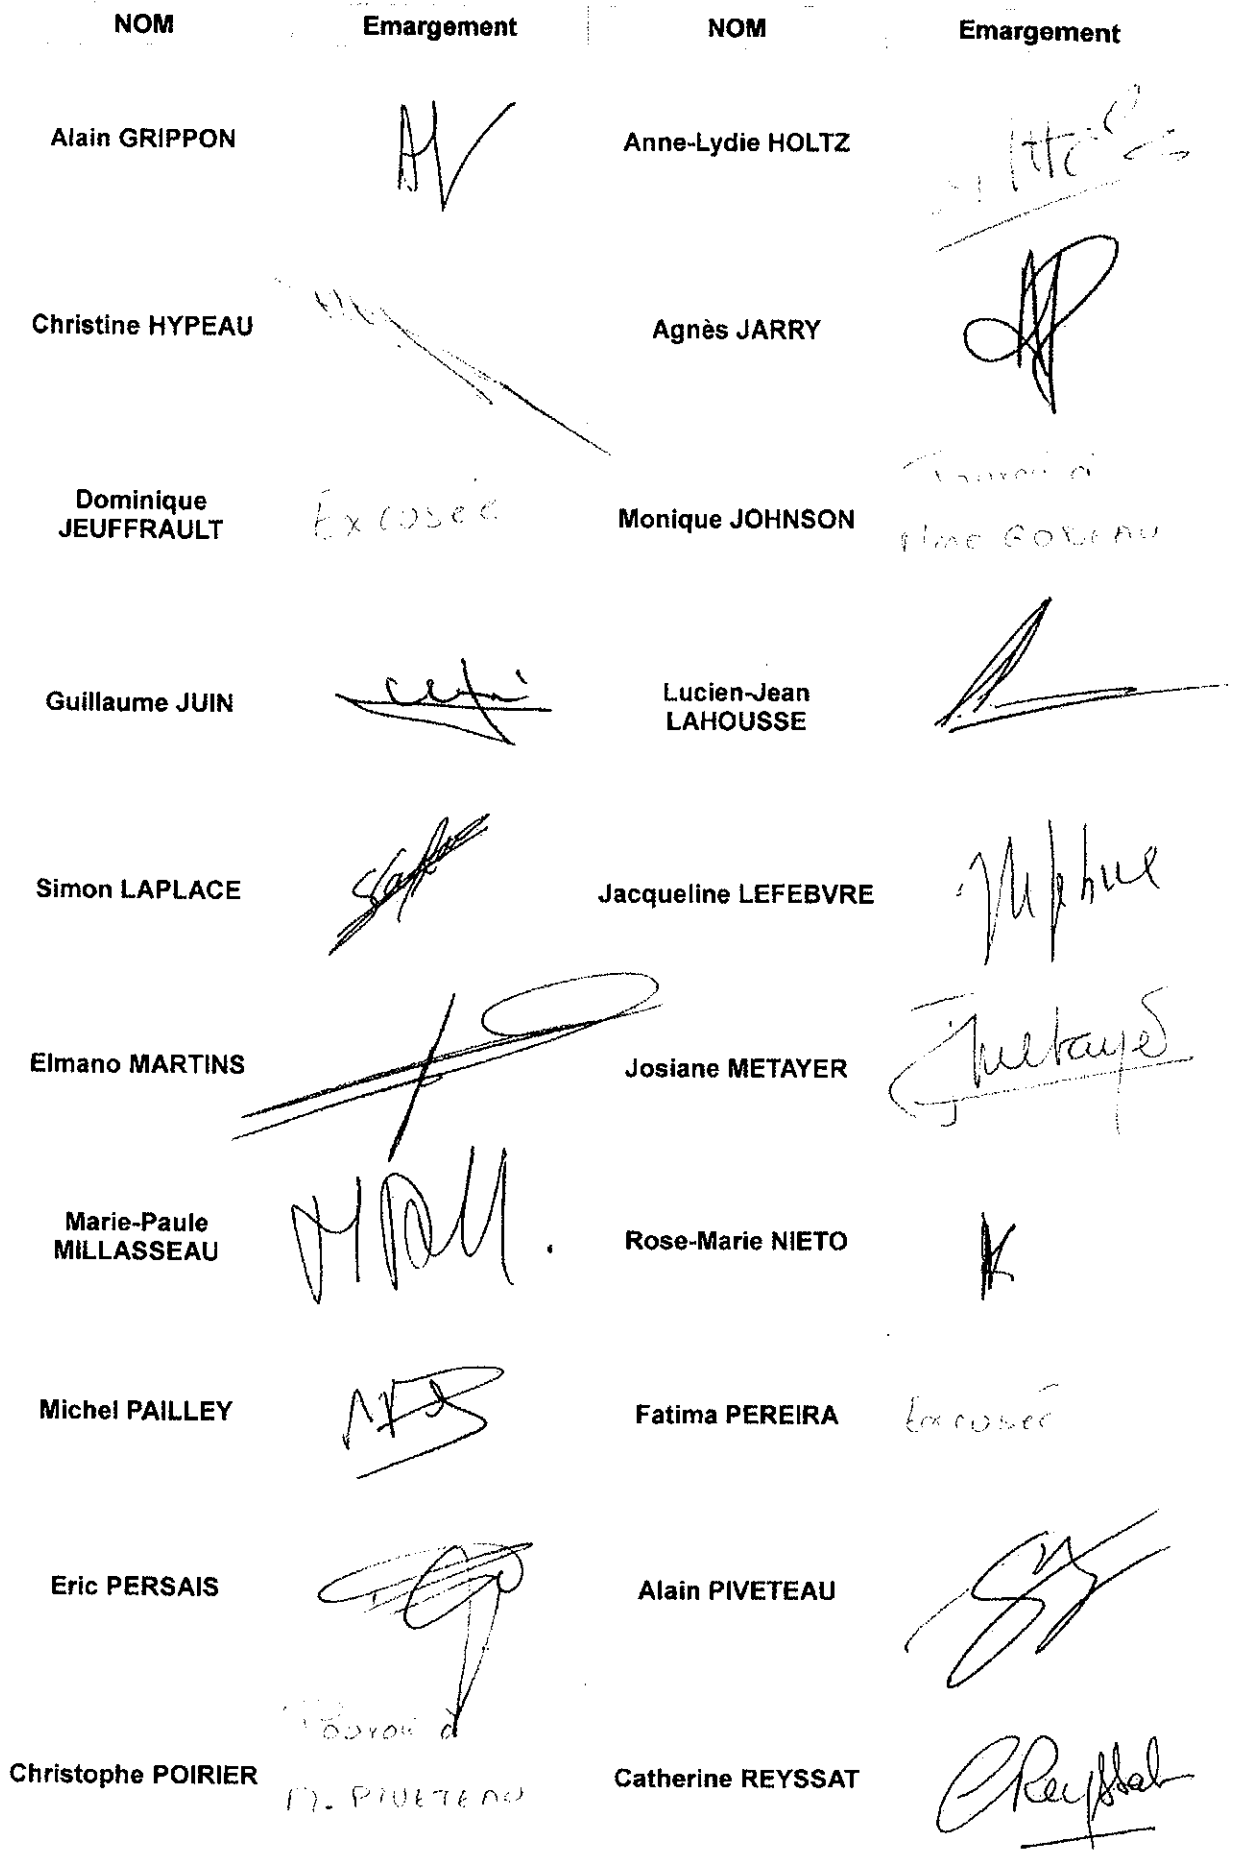 NOM Emargement NOM Emargement
Alain GRIPPON Anne-Lydie HOLTZ
Christine HYPEAU Agnès JARRY
Dominique
JEUFFRAULT
Excusée
Monique JOHNSON
Pouvoir à
Mme
Guillaume JUIN
Lucien-Jean
LAHOUSSE
Simon LAPLACE Jacqueline LEFEBVRE
Elmano MARTINS Josiane METAYER
Marie-Paule
MILLASSEAU
Rose-Marie NIETO
Michel PAILLEY Fatima PEREIRA Excusée
Eric PERSAIS Alain PIVETEAU
Christophe POIRIER
Pouvoir à
M. PIVETEAU
Catherine REYSSAT CReyssat